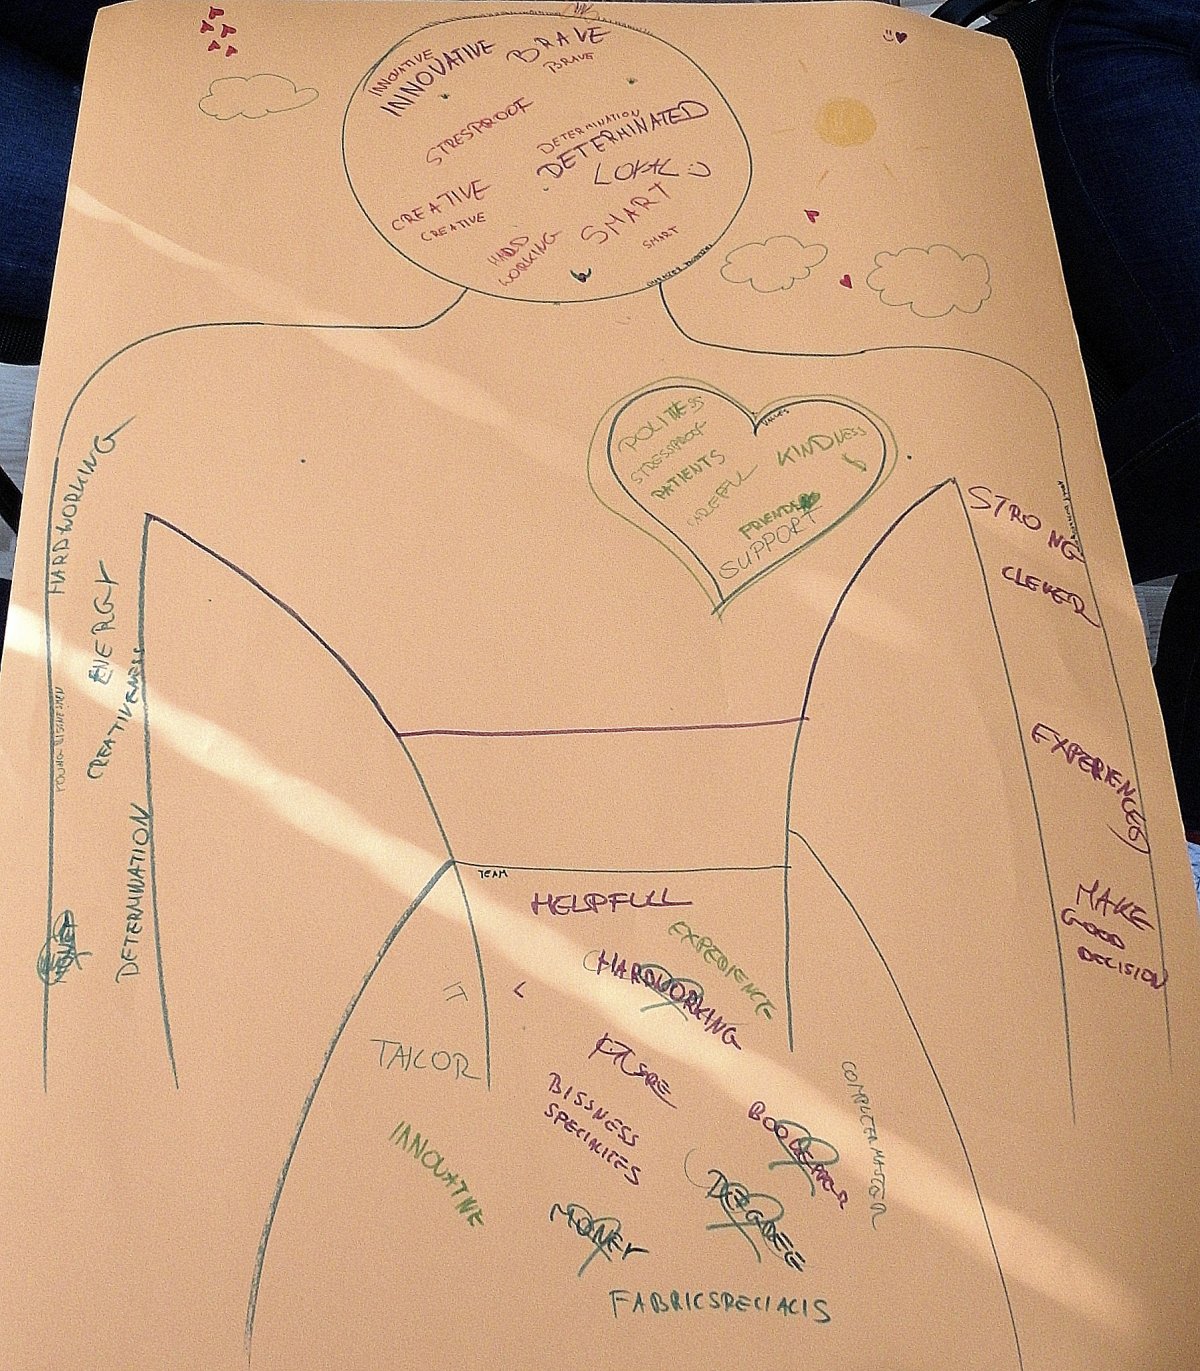 INNOVATIVE
INNOVATIVE
BRAVE
BRAVE
STRESPROOF
DETERMINATION
DETERMINATED
LOKAL
CREATIVE
CREATIVE
SMART
SMART
HARD
WORKING
POLITNESS
STRESSPROOF
PATIENTS
CAREFUL
KINDNESS
FRIENDS
SUPPORT
VALUES
HARDWORKING
ENERGY
CREATIVENESS
DETERMINATION
MONEY
STRONG
CLEVER
EXPERIENCES
MAKE
GOOD
DECISION
TEAM
HELPFULL
EXPERIENCE
HARDWORKING
IT
TAILOR
BISSNESS
SPECIALITES
INNOVATIVE
MONEY
DEGREE
COMPUTER MASTER
FABRICSPECIALIS